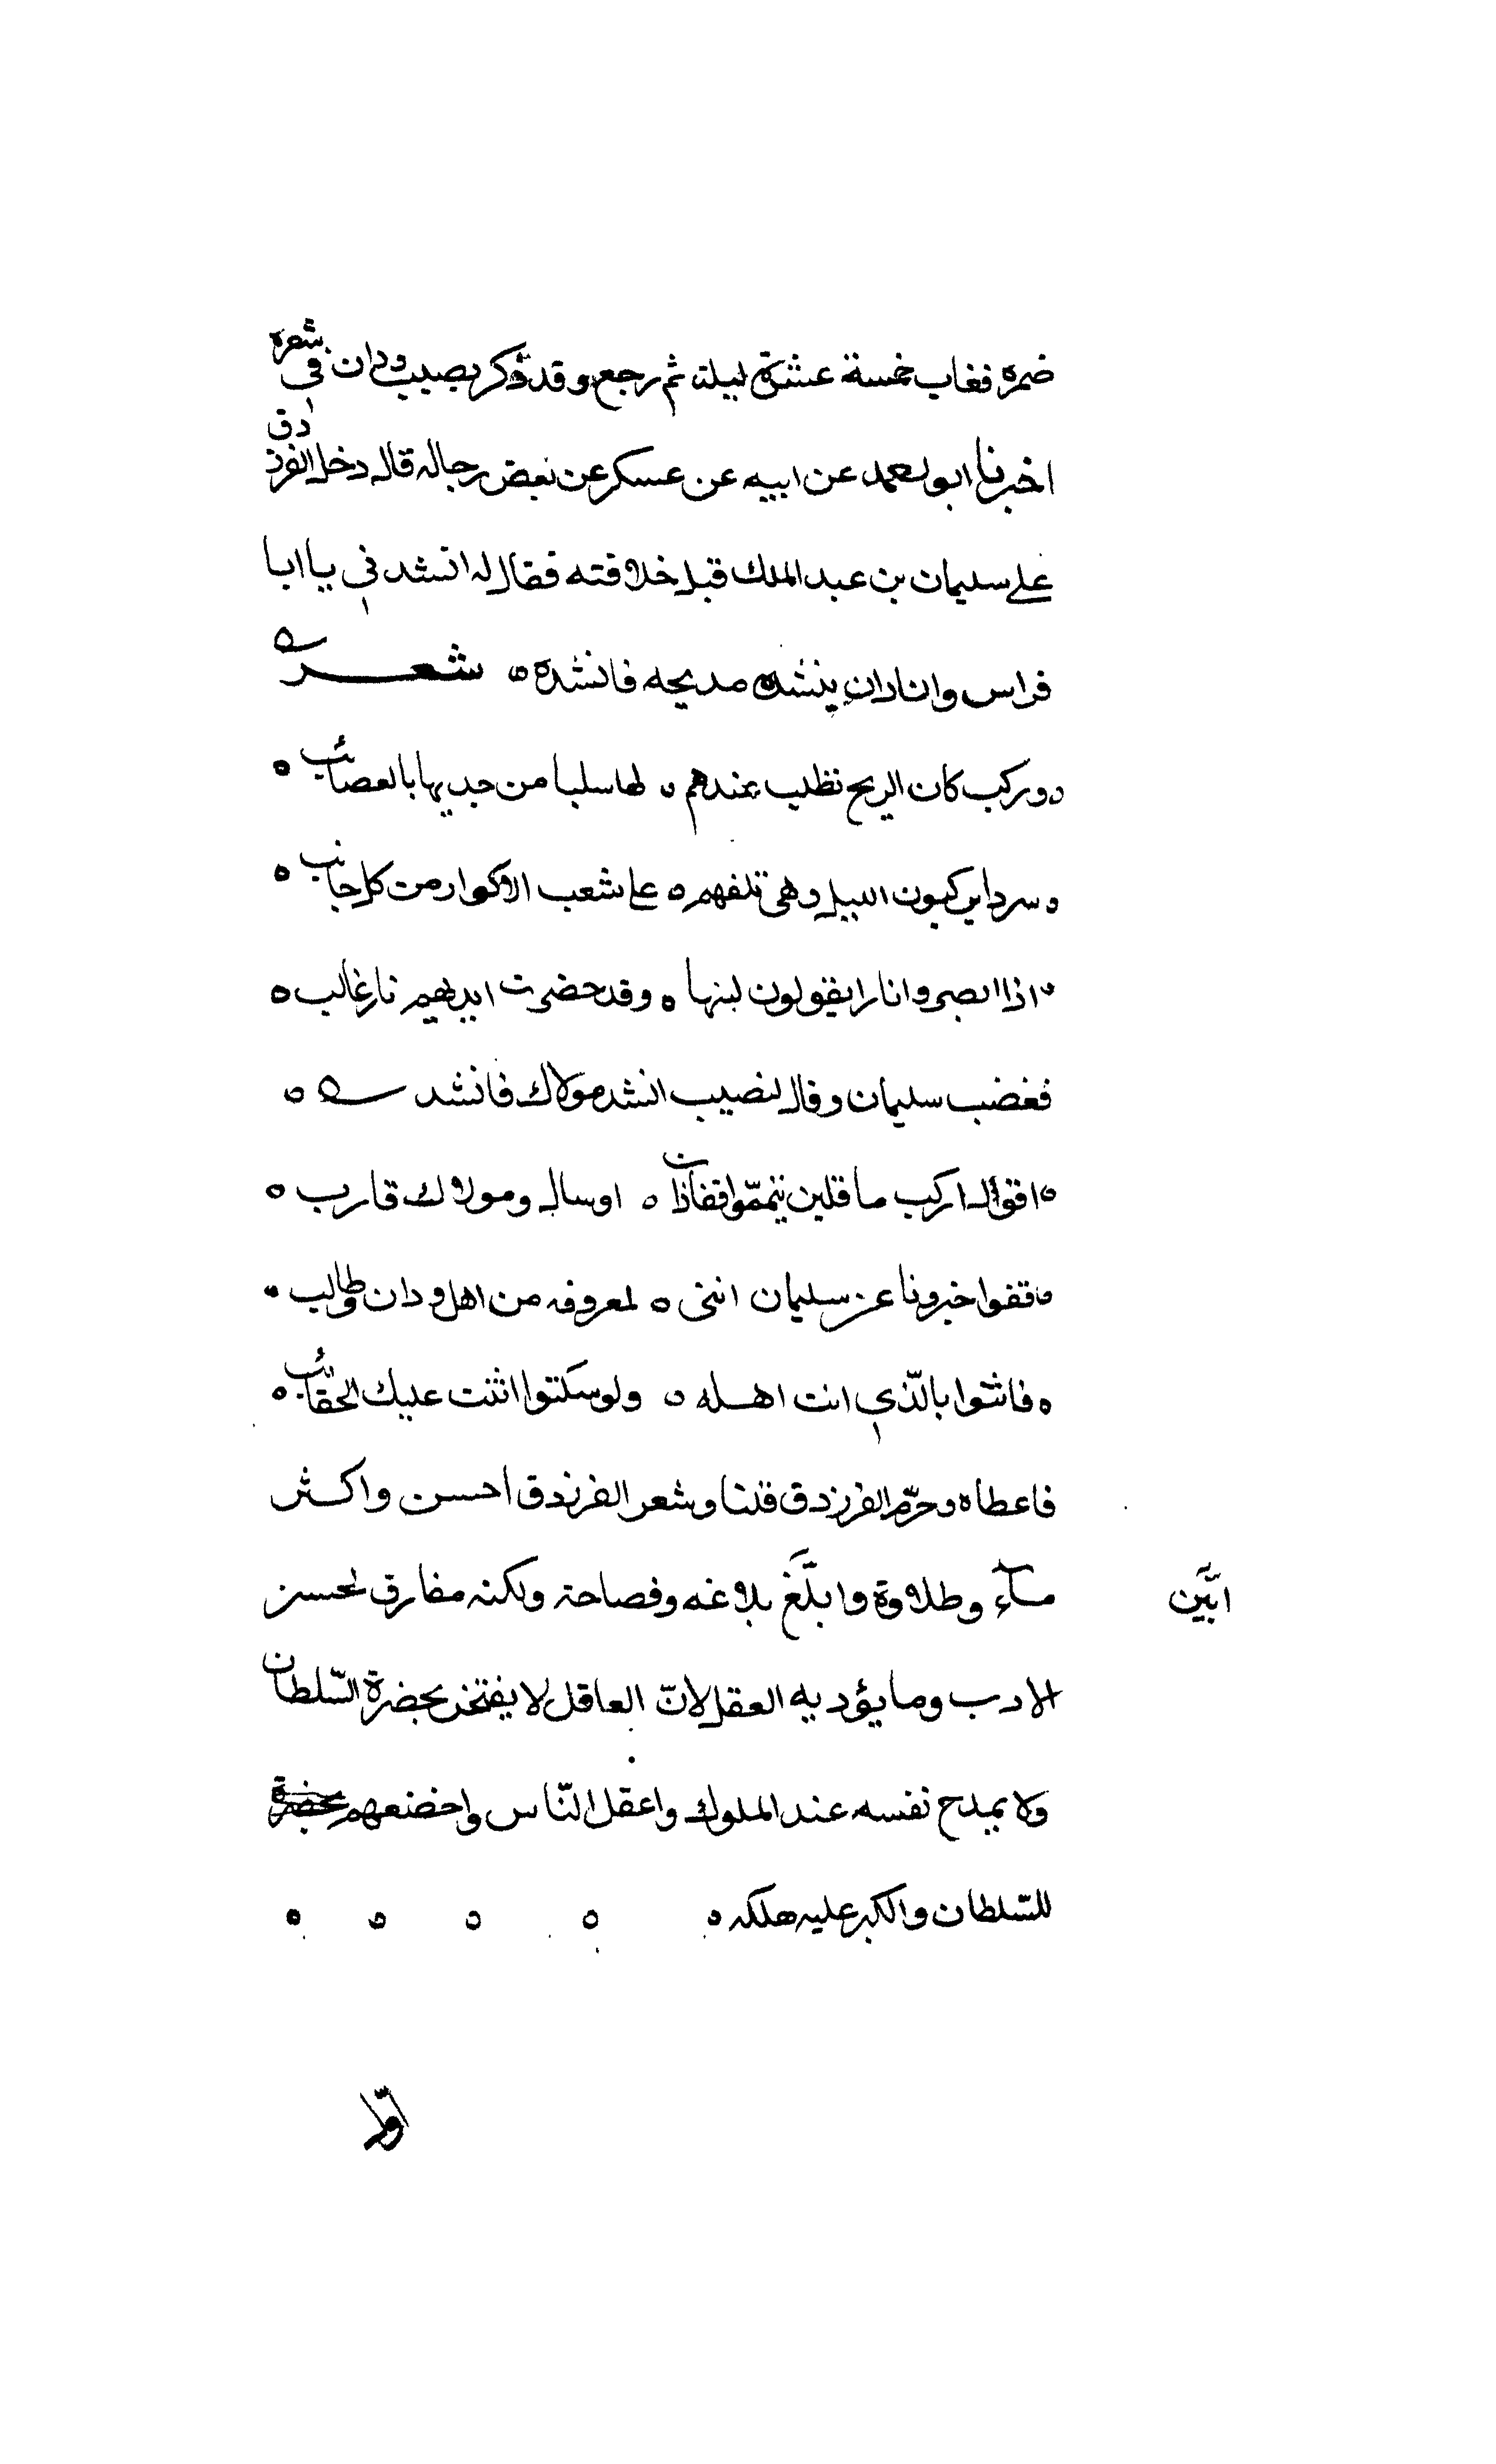 ضمره فغاب خمسة عشرة ليلة ثم رجع وقد ذكر نصيب ودان في شعره
اخبرنا ابو احمد عن ابيه عن عسكر عن بعض رجاله قال دخل الفرزدق
على سليمان بن عبد الملك قبل خلافته فقال له انشدني يا ابا
فراس وانا دان ينشده مديحه فانشده ه شعر
وركب كان الريح تطلب عندهم ه لها سلبا من جديها بالعصائب ه
ه سردا يركبون الليل وهي تلفهم ه على شعب الاكوار من كل جانب ه
ه اذا ابصروا نارا يقولون ليتها ه وقد حضرت ايديهم نار غالب ه
فغضب سليمان وقال لنصيب انشد مولاك فانشد ه
ه اقول لركب ما قلين تيمموا قفاذات ه اوسال ومولاك قارب ه
ه قفوا خبرونا عن سليمان انني ه لمعروفه من اهل ودان وطالب ه
ه فاثنوا بالّذي انت اهله ه ولو سكتوا اثنت عليك الحقائب ه
فاعطاه وحرّم الفرزدق قلنا وشعر الفرزدق احسن واكثر
مآء وطلاوة وابلَغ بلاغه وفصاحة ولكنه مفارق لحسن
ابيَن
الادب وما يؤديه العقل لانّ العاقل لا يفتخر بحضرة السّلطان
ولا يمدح نفسه عند الملوك واعقل النّاس واخضعهم بحضرة
للسّلطان والكبر عليه هلكه ه ه ه ه ه
اوّل